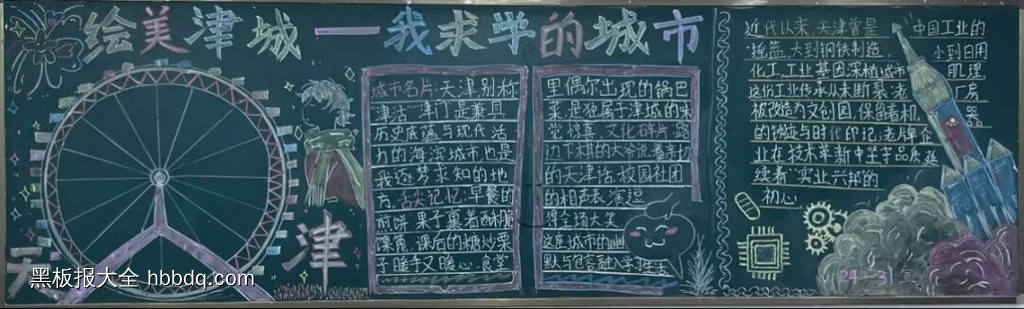 绘美津城一我求学的城市
天
津
城市名片:天津,别称
"津沽""津门",是兼具
历史底蕴与现代活
力的海滨城市也是
我逐梦求知的地
方.舌尖记忆:早餐的
煎饼果子裹着酥脆
课后的糖炒栗
子暖手又暖心.食堂
里偶尔出现的锅巴
菜是独属于津城的味
觉惊喜.文化碎片:路
边下棋的大爷说着
的天津话,校园社团
的相声表演逗
得全场大笑
这座城市的幽
默与包容融入学习生活
近代以来,天津曾是 中国工业的
摇篮.大到钢铁制造, 小到日用
化工,工业基因深植城市 肌理
这份工业传承从未断裂:老 厂房
被改造为文创园,保留着机 器
的轨迹与时代印记;老牌企
业在技术革新中坚守品质,延
续着"实业兴邦"的
初心
24-31宣
黑板报大全 hbbdq.com